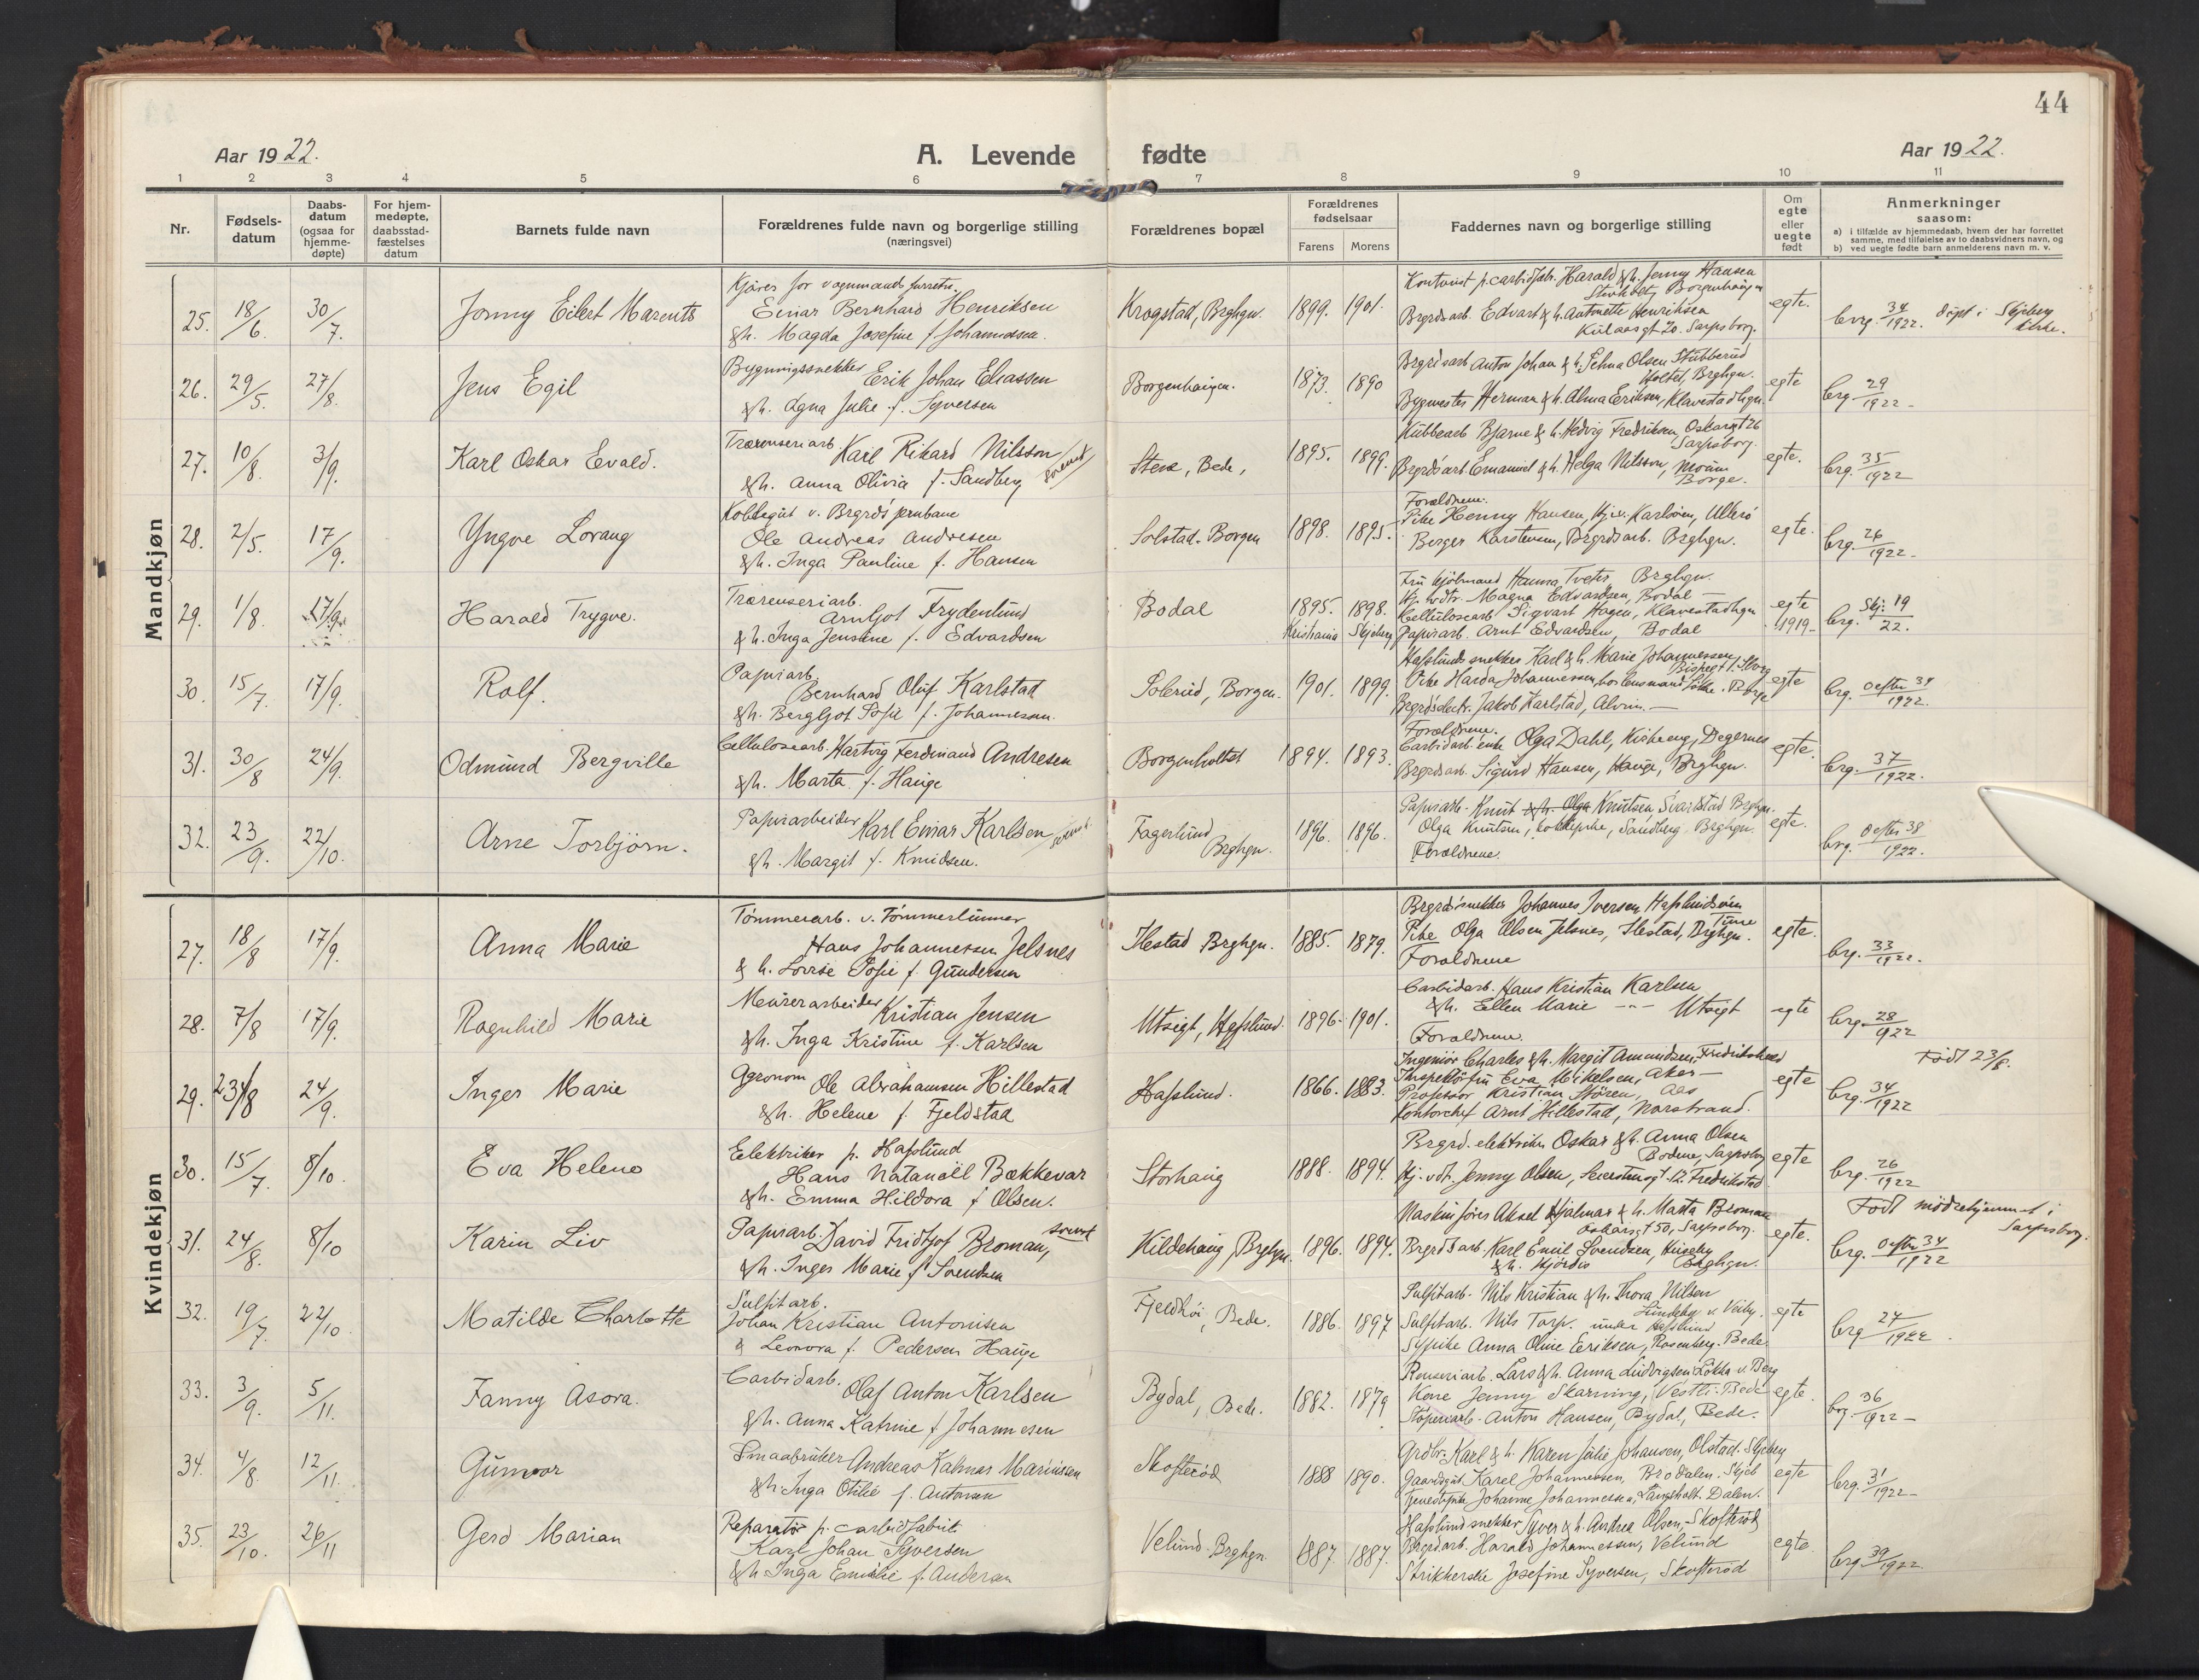 44
Aar 1922.
A. Levende fødte
Aar 1922.
1 2 3 4 5 6 7 8 9 10 11
Nr.
Fødsels-
datum
Daabs-
datum
(ogsaa for
hjemme-
døpte)
For hjem-
medøpte,
daabsstad-
fæstelses
datum
Barnets fulde navn
Forældrenes fulde navn og borgerlige stilling
(næringsvei)
Forældrenes bopæl
Forældrenes
fødselsaar
Farens Morens
Faddernes navn og borgerlige stilling
Om
egte
eller
uegte
født
Anmerkninger
saasom:
a) i tilfælde av hjemmedaab, hvem der har forrettet
samme, med tilføielse av to daabsvidners navn, og
b) ved uegte fødte barn anmelderens navn m. v.
Mandkjøn
25. 18/6 30/7.
Jonny Eilert Marents
Kjører for vognmands forretn.
Einar Bernhard Henriksen
&h. Magda Josefine f. Johannesen.
Krogstad, Brghgn. 1899. 1901.
Kontorist p. carbidfabr. Harald &h. Jenny Hansen
Borgenhaugen
Brgrdsarb. Edvart &h. Antonette Henriksen
Kulaasgt 20. Sarpsborg.
egte.
brg. 34/1922. døpt i Skjeberg
kirke.
26. 29/5. 27/8.
Jens Egil
Bygningssnekker Erik Johan Eliassen
&h. Agna Julie f. Syversen
Borgenhaugen. 1873. 1890
Brgrdsarb Anton Johan & h. Selma Olsen Stubberud
Holtet, Brghgn.
Bygmester Herman &h. Alma Eriksen, Klavestadhgn.
egte
brg. 29/1922.
27. 10/8. 3/9.
Karl Oskar Evald.
Træsenseriarb. Karl Rikard Nilsson
svensk
&h. Anna Olivia f. Sandberg
Stene, Bede, 1895. 1899.
Kubbearb Bjarne & h. Hedvig Fredriksen, Oskarsgt 26
Sarpsborg.
Brgrdsarb Emanuel &h. Helga Nilsson, Moum
Borge.
egte.
brg. 35/1922
28. 2/5. 17/9.
Yngve Lorang
Koblegut v. Brgrds prubane
Ole Andreas Andresen
&h. Inga Pauline f. Hansen
Solstad. Borgen 1898. 1895.
Forældrene.
Pike Henny Hansen, Karlsøen, Ullerø
Birger Karstensen, Brgrdsarb. Brghgn.
egte.
brg. 26/1922.
29. 1/8. 17/9.
Harald Trygve.
Træsenseriarb.
Arnljot Frydenlund
& h. Inga Jensine f. Edvardsen
Bodal 1895. 1898.
Kristiania Skjeberg
Fru kjøbmand Hanna Tveter, Brghgn.
Hj. vdtr. Magna Edvardsen, Bodal —
Cellulosearb Sigvart Hagen, Klavestadhgn
Papirarb. Arnt Edvardsen, Bodal
egte
1919
brg. Skj: 19/22.
30. 15/7. 17/9.
Rolf.
Papirarb
Bernhard Oluf Karlstad
&h. Bergljot Sofie f. Johannesen.
Solerud, Borgen. 1901. 1899.
Hafslunds snekker Karl & h. Marie Johannessen
Pike Harda Johannessen, hos lensmand Løkke. Borge
Brgrdselektr. Jakob Karlstad, Alvim. —
egte
brg. 34/1922.
31. 30/8 24/9.
Odmund Bergville
Cellulosearb. Hartvig Ferdinand Andresen
&h. Marta f. Hauge
Borgenholtet 1894. 1893.
Forældrene.
Carbidarb. enke Olga Dahl, Degernes
Brgrdsarb. Sigurd Hansen, Hauge, Brghgn.
egte.
brg. 37/1922.
32. 23/9. 22/10.
Arne Torbjørn.
Papirarbeider Karl Einar Karlsen
svensk.
&h. Margit f. Knudsen.
Fagerlund
Brghgn. 1896. 1896.
Papirarb. Knut &h. Olga Knutsen, Svartstad Brghgn.
Olga Knutsen, kokkepike, Sandberg, Brghgn.
Forældrene.
egte.
brg. 38/1922.
Kvindekjøn
27. 18/8 17/9.
Anna Marie
Tømmerarb. v. Tømmerlunner
Hans Johannesen Jelsnes
& h. Lovise Sofie f. Gundersen
Ilestad Brghgn. 1885. 1879.
Brgrdsnekker Johannes Iversen Hafslundsøen
Pike Olga Olsen Jelsnes, Ilestad, Brghgn.
Forældrene
egte.
brg. 33/1922.
28. 7/8 17/9.
Ragnhild Marie
Meierarbeider Kristian Jensen
&h. Inga Kristine f. Karlsen
Utsigt, Hafslund. 1896. 1901.
Carbidarb. Hans Kristian Karlsen
&h. Ellen Marie — Utsigt
Forældrene.
egte
brg. 28/1922
29. 23/8 24/9.
Inger Marie
Agronom Ole Abrahamsen Hillestad
&h. Helene f. Fjeldstad
Hafslund. 1866. 1883.
Ingeniør Charles &h. Margit Amundsen, Fredrikstad
Inspektørfru Eva Mikelsen, Aker —
Professor Kristian Støren, Aas
Kontorchef Arnt Hillestad, Norstrand.
egte
Født 23/8.
brg. 34/1922
30. 15/7. 8/10.
Eva Helene
Elektriker p. Hafslund
Hans Natanaël Bækkevar
&h. Emma Hildora f. Olsen.
Storhaug 1888. 1894.
Brgrd. elektriker Oskar &h. Anna Olsen
Bodene, Sarpsborg
Hj. vdt. Jenny Olsen, Fredrikstad
egte
brg. 26/1922
31. 24/8. 8/10
Karin Liv
Papirarb. David Fridtjof Broman, svensk
&h. Inger Marie f. Svendsen
Kildehaug, Brghgn. 1896. 1894.
Maskinfører Aksel Hjalmar & h. Marta Broman
Oskarsgt 50, Sarpsborg.
Brgrdsarb. Karl Emil Svendsen, Huseby
&h. Hjørdis Brghgn.
egte.
Født mødrehjemmet i
Sarpsborg.
brg. 34/1922
32. 19/7. 22/10
Matilde Charlotte
Sulfitarb.
Johan Kristian Antonisen
& Leonora f. Pedersen Hauge
Fjeldhøi, Bede. 1886. 1897
Sulfitarb. Nils Kristian &h. Thora Nilsen
Lundeby v. Veiby.
Sulfitarb. Nils Torp. under Hafslund
Sypike Anna Oline Eriksen, Rosenberg. Bede.
egte
brg 27/1922.
33. 3/9. 5/11.
Fanny Asora.
Carbidarb. Olaf Anton Karlsen
&h. Anna Katrine f. Johannesen
Bydal, Bede. 1882. 1879
Renseriarb. Lars &h. Anna Ludvigsen Løkka v. Berg
Kone Jenny Skarning, Vestli. Bede
Støperiarb. Anton Hansen, Bydal, Bede.
egte.
brg. 36/1922
34. 4/8. 12/11.
Gunvor
Smaabruker Andreas Kalmar Mariussen
&h. Inga Otilie f. Antonsen
Skofterød 1888 1890.
Grdbr. Karl & h. Karen Julie Johansen, Olstad. Skjeberg
Gaardsgut Karel Johannessen, Brodalen. Skjeb
Tjenestepike Johanne Johannessen, Langholt. Dalen.
egte
brg. 31/1922
35. 23/10. 26/11
Gerd Marian
Reparatør p. carbidfabrik
Karl Johan Syversen
&h. Inga Emilie f. Andersen
Velund. Brghgn. 1887. 1887.
Hafslundsnekker Syver & h. Andrea Olsen, Skofterød
Brgrdarb. Harald Johannessen, Velund
Strikkerske Josefine Syversen, Skofterød
egte
brg 39/1922